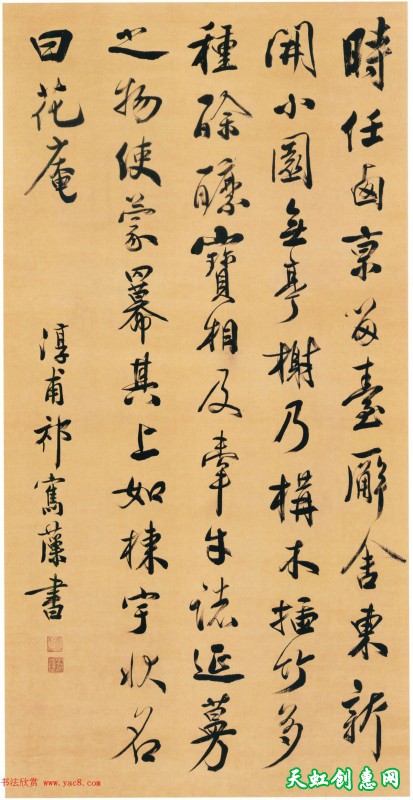 時任鹵京留臺廨舍東新
開小園無亭榭乃構木插竹多
種酴醿寶相及牽牛諸延蔓
之物使蒙羃其上如棟宇狀名
曰花庵
淳甫祁寯藻書
书法欣赏 www.yac8.com
天虹创惠网